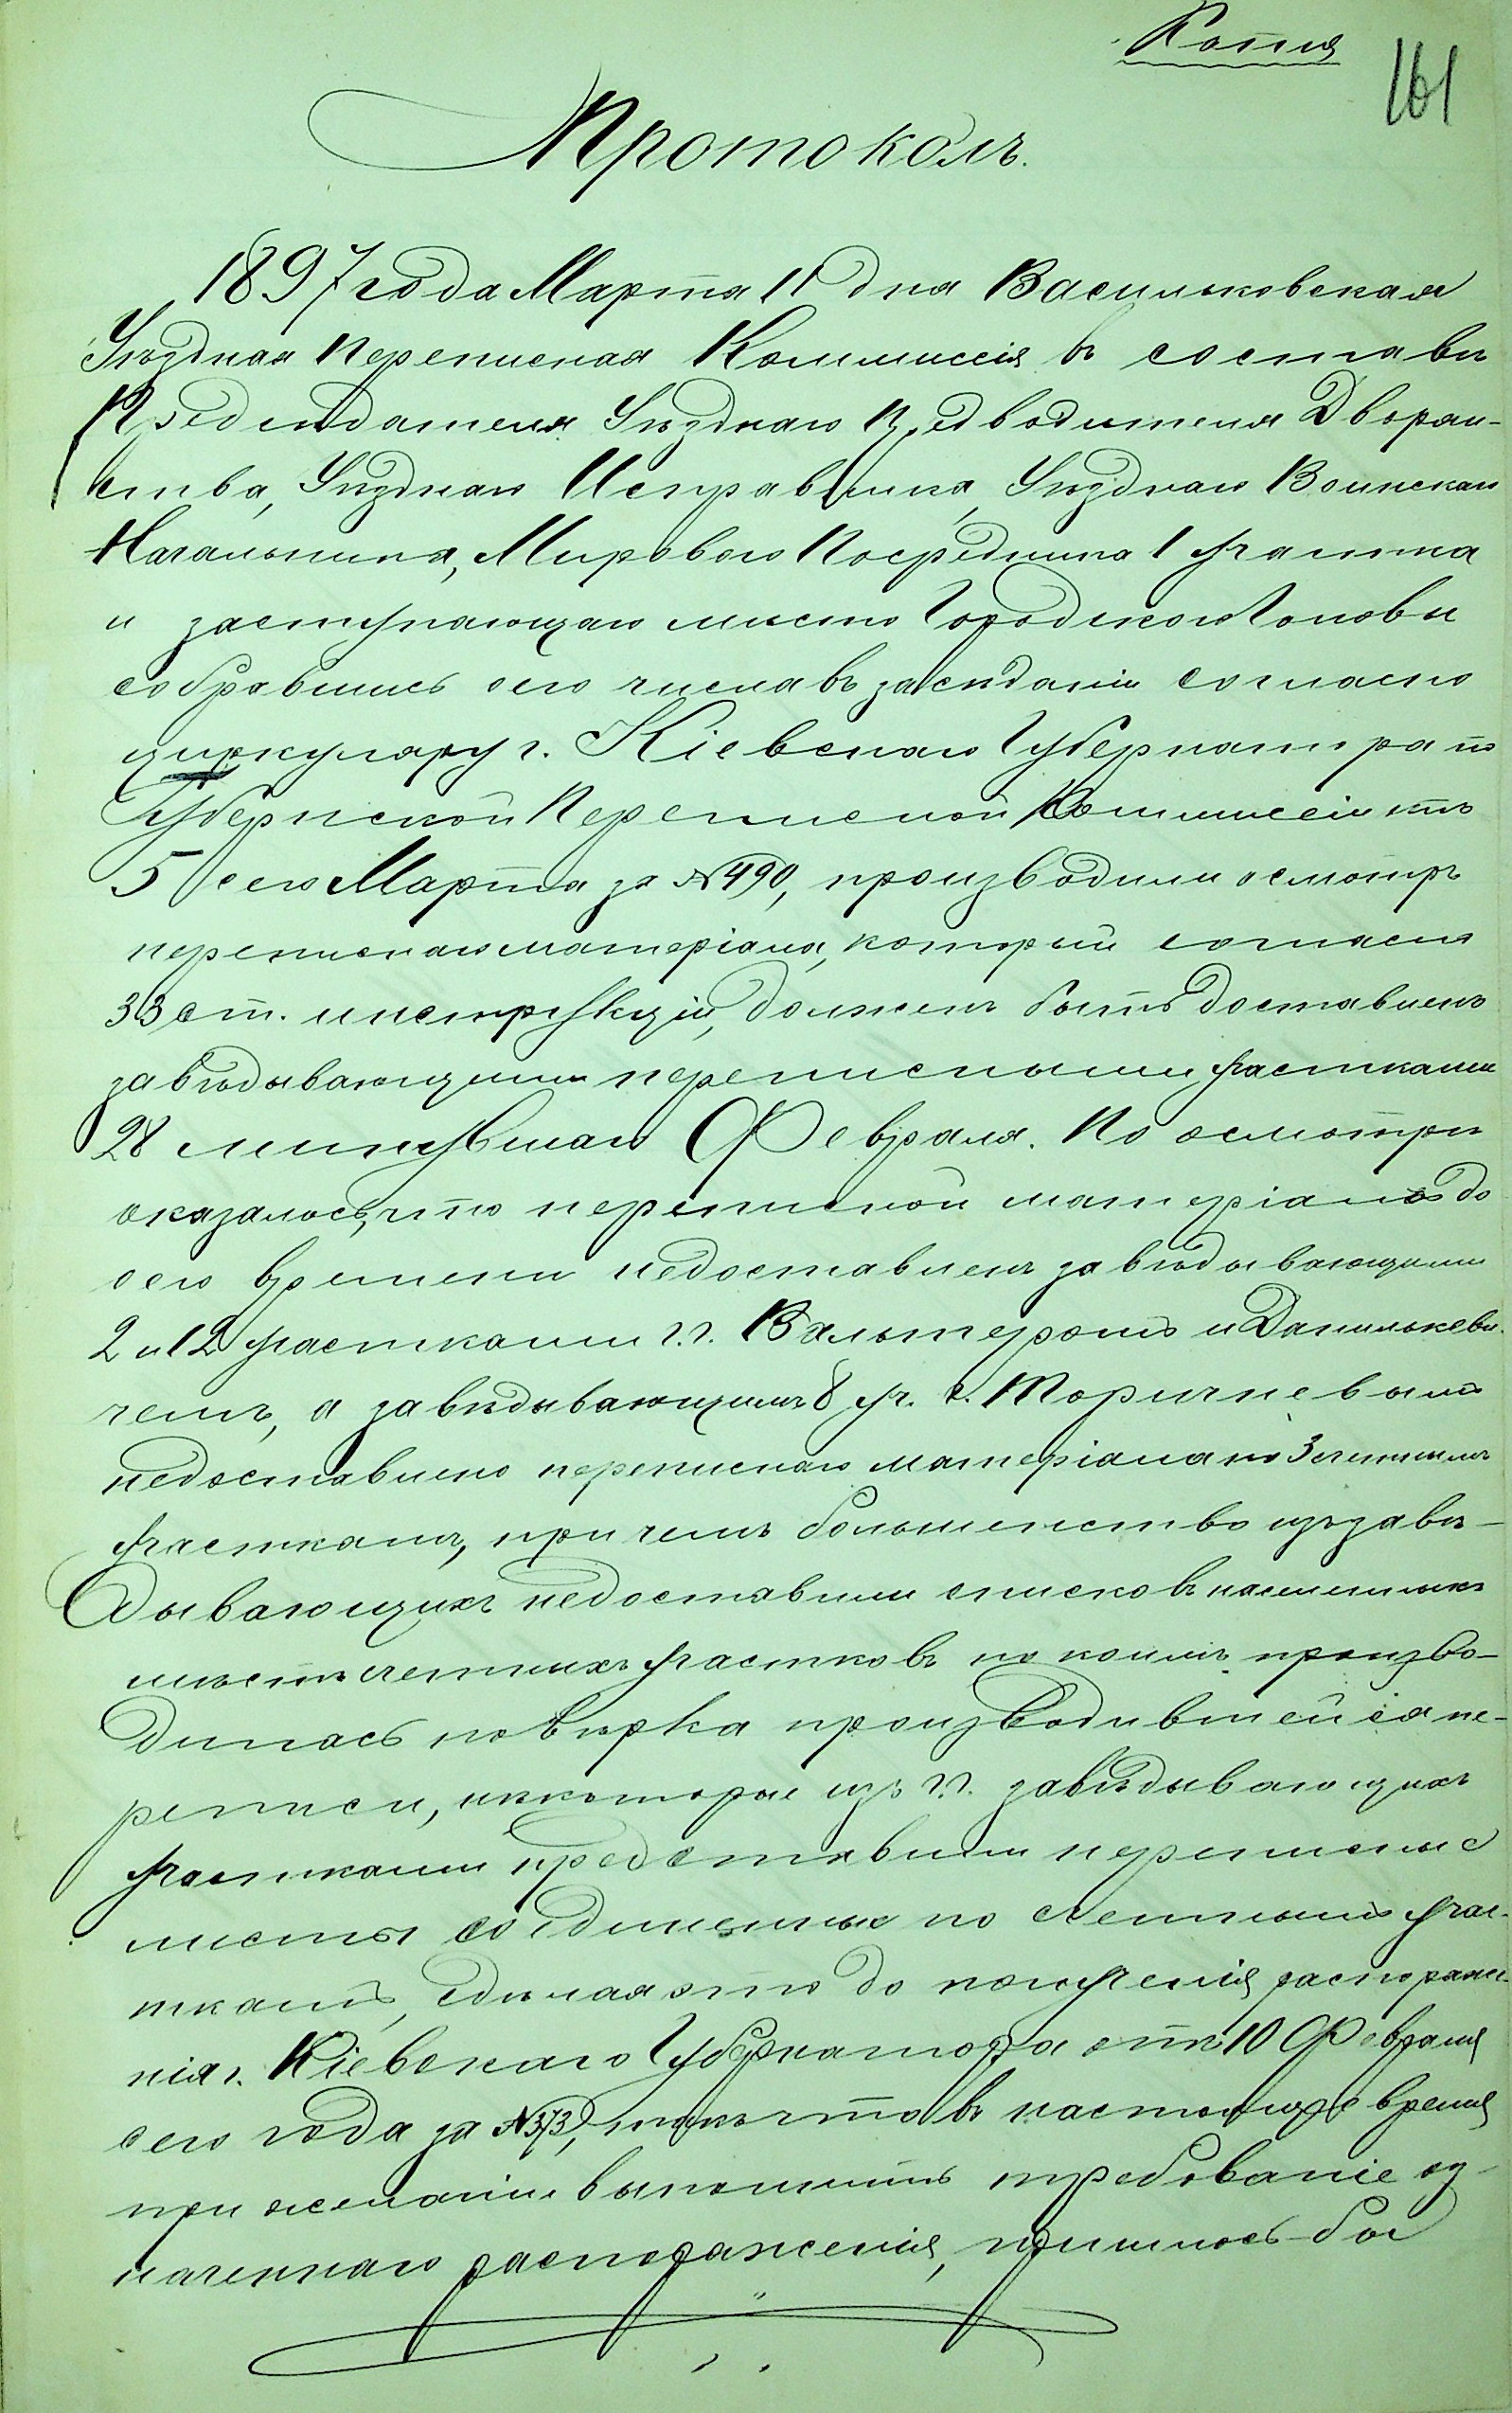 Копия
161
Протоколъ.
1897 года Марта 11 дня Васильковская
Уѣздная Переписная Коммиссія въ составѣ
Председателя Уѣзднаго Предводителя Дворян-
ства, Уѣзднаго Исправника, Уѣзднаго Воинскаго
Начальника, Мироваго Посредника 1 участка
и заступающаго мѣсто Городскаго Головы
собравшись сего числа въ засѣданіи согласно
циркуляру г. Кіевскаго Губернатора по
Губернской Переписной Коммиссіи отъ
5 сего Марта за №490, производили осмотръ
переписнаго матеріала, который согласно
33 ст. инструкціи, долженъ быть доставленъ
завѣдывающими переписными участками
28 минувшаго Февраля. По осмотрѣ
оказалось, что переписной матеріалъ до
сего времени недоставленъ завѣдывающими
2 и 12 участками г.г. Вальтеромъ и Данилькеви-
чемъ, а завѣдывающимъ 8 уч. г. Торичневымъ
недоставлено переписнаго матеріала по 3 счетнымъ
участкамъ, при чемъ большенство изъ завѣ-
дывающихъ недоставили списковъ населенныхъ
мѣстъ счетныхъ участковъ по коимъ произво-
дилась повѣрка производившейся пе-
реписи, нѣкоторые изъ г.г. завѣдывающихъ
участками представили переписные
листы соединенные по счетнымъ учас-
ткамъ, сдѣлая это до полученія распоряже-
нія г. Кіевскаго Губернатора отъ 10 Февраля
сего года за №373, такъ что въ настоящее время
при желаніи выполнить требованіе оз-
наченнаго распоряженія, пришлось бы